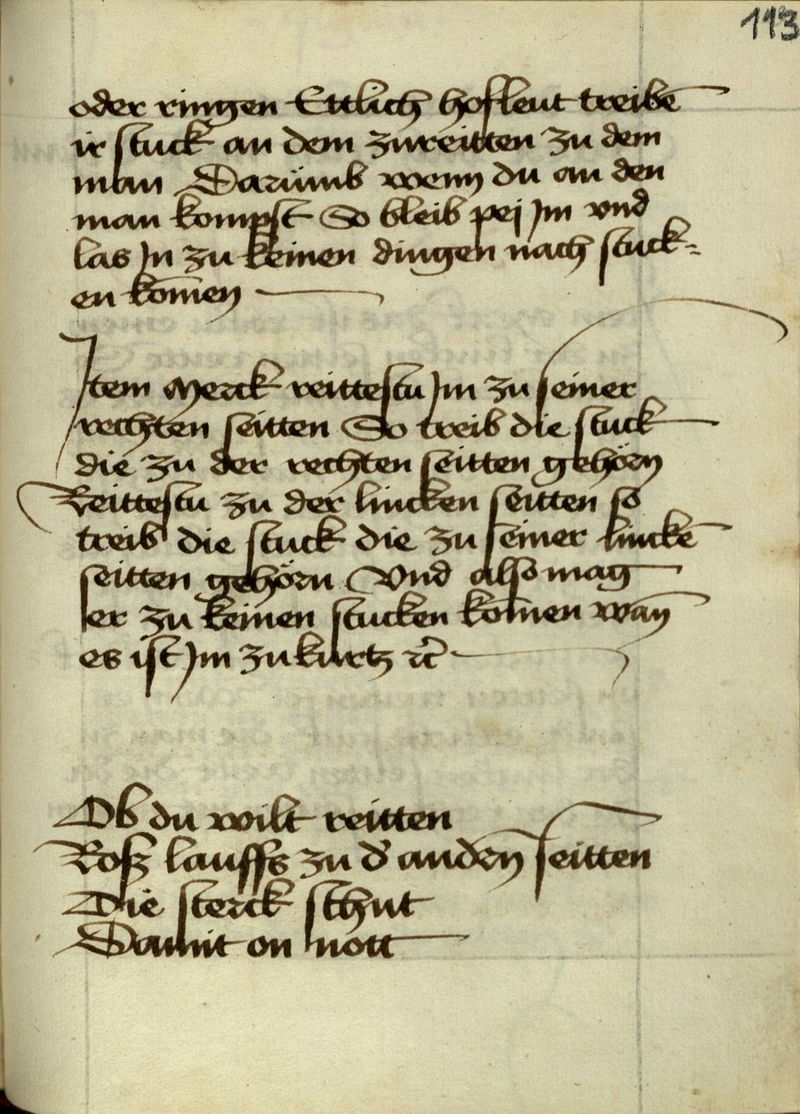 113
oder ringen Ettlich hofleut treibē
ir stuck an dem zureitten zu dem
man Darumb wenn du an den
man kompst So bleib pej Jm vnd
las Jn zu keinen dingen nach stuck=
en komē
Jtem Merck reittestu Jm zu seiner
rechten seitten So treib die stuck
die zu der rechten seitten gehörn
Reittestu zu der lincken seitten so
treib die stuck die zu seiner linckē
seitten gehörn Vnd also mag
er zu keinen stucken komen wan̄
es ist Jm zu kurtz ꝛc̄
Ob du wilt reitten
Roß lauffs zu d' andern seitten
Die sterck schut
Damit on nott